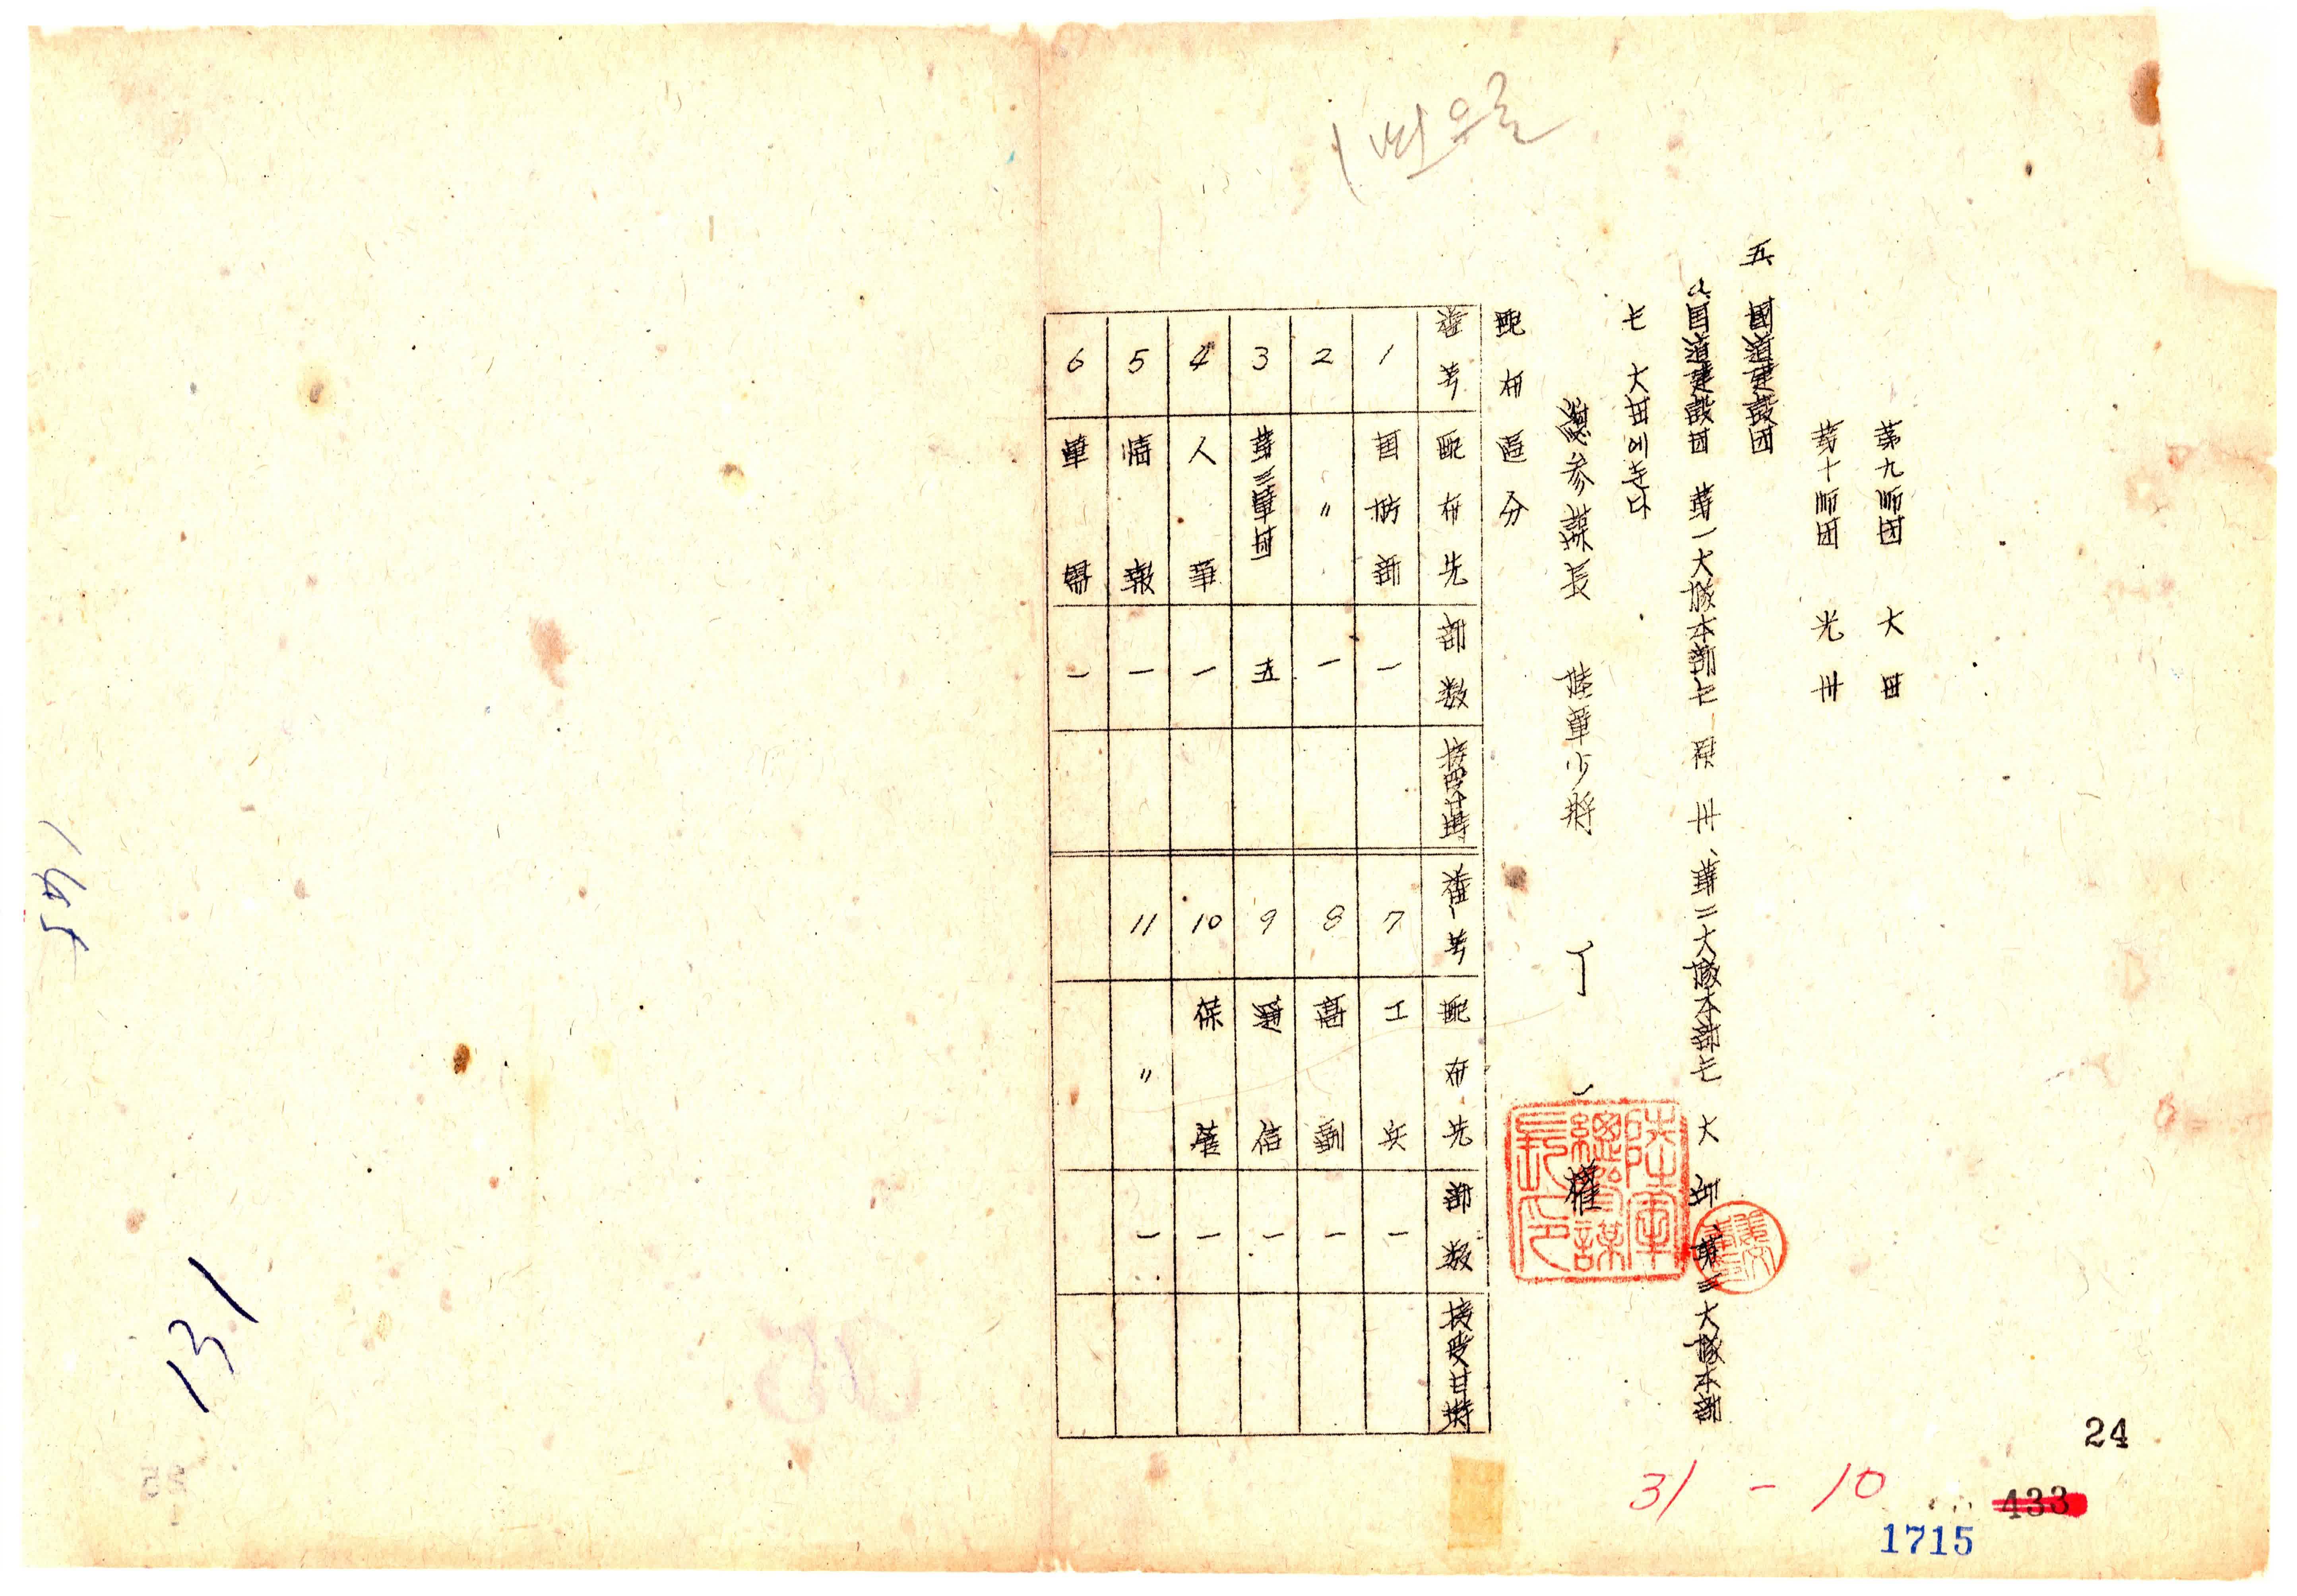 第九師団 大田
第十師団 光州
五 國道建設団
八 国道建設団 第一大隊本部는 原州、第二大隊本部는 大邱、第三大隊本部
는 大田에 둔다
總参謀長 陸軍少將 丁 一 權
陸軍總參謀長印
配布區分
番号 配布先 部数 接受日時 番号 配布先 部数 接受日時
1 国防部 一 7 工兵 一
2 〃 一 8 高副 一
3 第三軍団 五 9 通信 一
4 人事 一 10 保管 一
5 情報 一 11 〃 一
6 軍需 一
131
31-10
24
433
1715